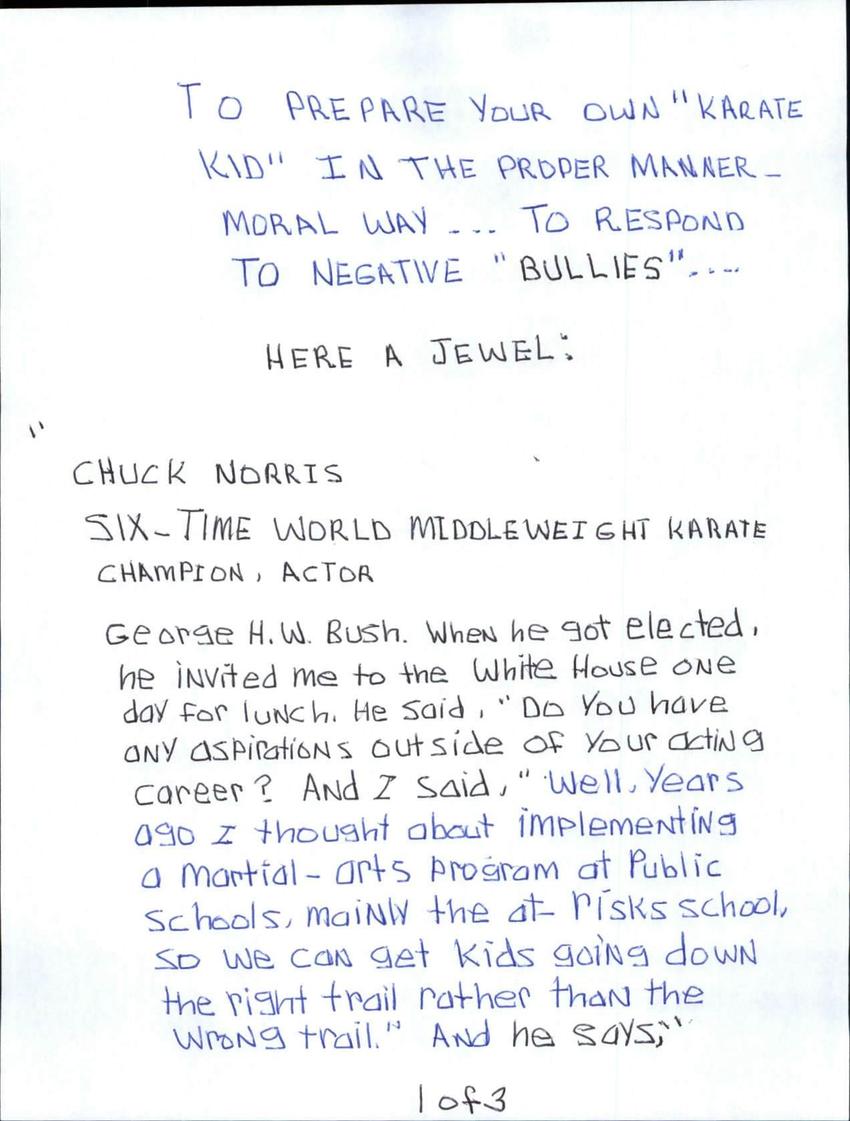 TO PREPARE YOUR OWN "KARATE
KID" IN THE PROPER MANNER-
MORAL WAY ... TO RESPOND
TO NEGATIVE "BULLIES"....
HERE A JEWEL:
"
CHUCK NORRIS
SIX-TIME WORLD MIDDLEWEIGHT KARATE
CHAMPION, ACTOR
George H.W. Bush. When he got elected,
he invited me to the White House one
day for lunch. He said, "Do you have
any aspirations outside of your acting
career? And I said, "Well, years
ago I thought about implementing
a martial-arts program at Public
schools, mainly the at-risks school,
so we can get kids going down
the right trail rather than the
wrong trail." And he says,"
1 of 3